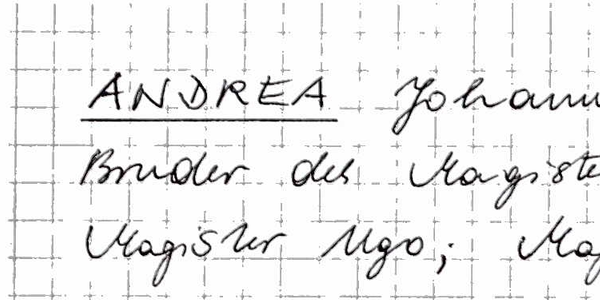 ANDREA Johann
Bruder des Magiste
Magister Ugo; Mag